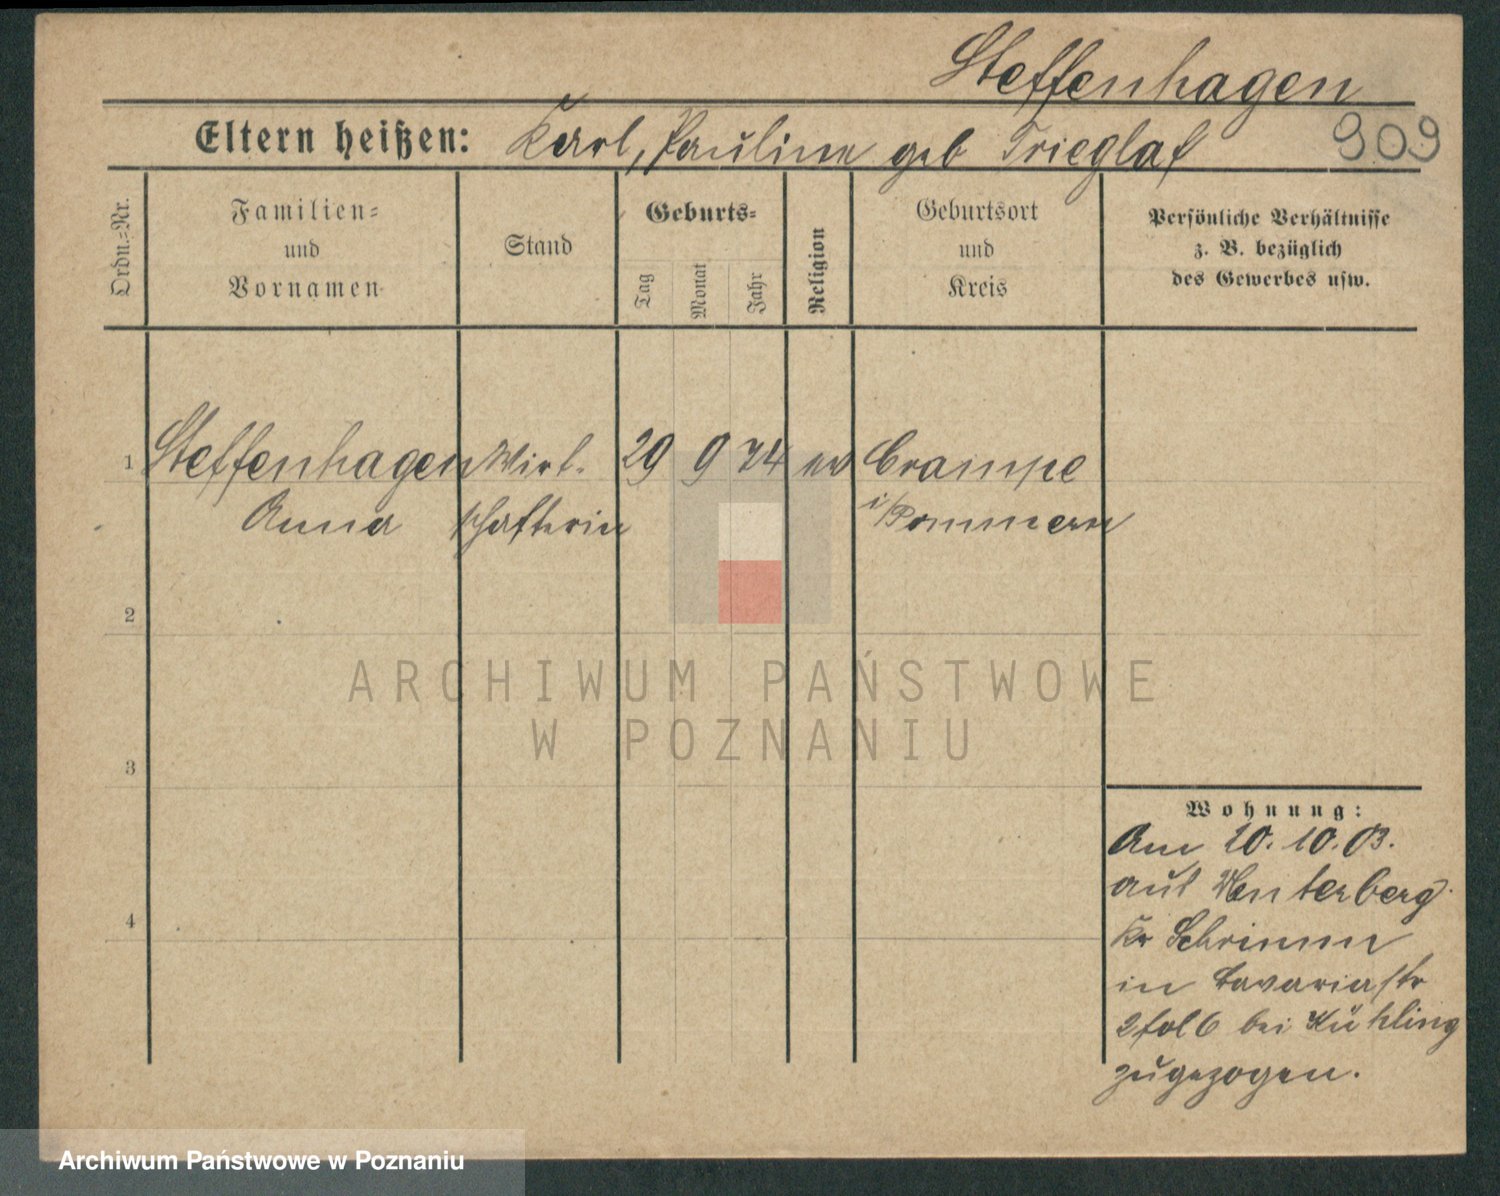 Steffenhagen
Eltern heißen: Karl, Pauline geb Trieglaf 909
Ordn.=Nr.
Familien=
und
Vornamen
Stand
Geburts=
Tag
Monat
Jahr
Religion
Geburtsort
und
Kreis
Persönliche Verhältnisse
z. B. bezüglich
des Gewerbes usw.
1 Steffenhagen Wirt- 29 9 74 ev Crampe
Anna schafterin i/Pommern
2
3
4
ARCHIWUM PAŃSTWOWE
W POZNANIU
Wohnung:
Am 10.10.03.
aus
Kr Schrimm
in Bavariastr
2 bei Kühling
zugezogen.
Archiwum Państwowe w Poznaniu